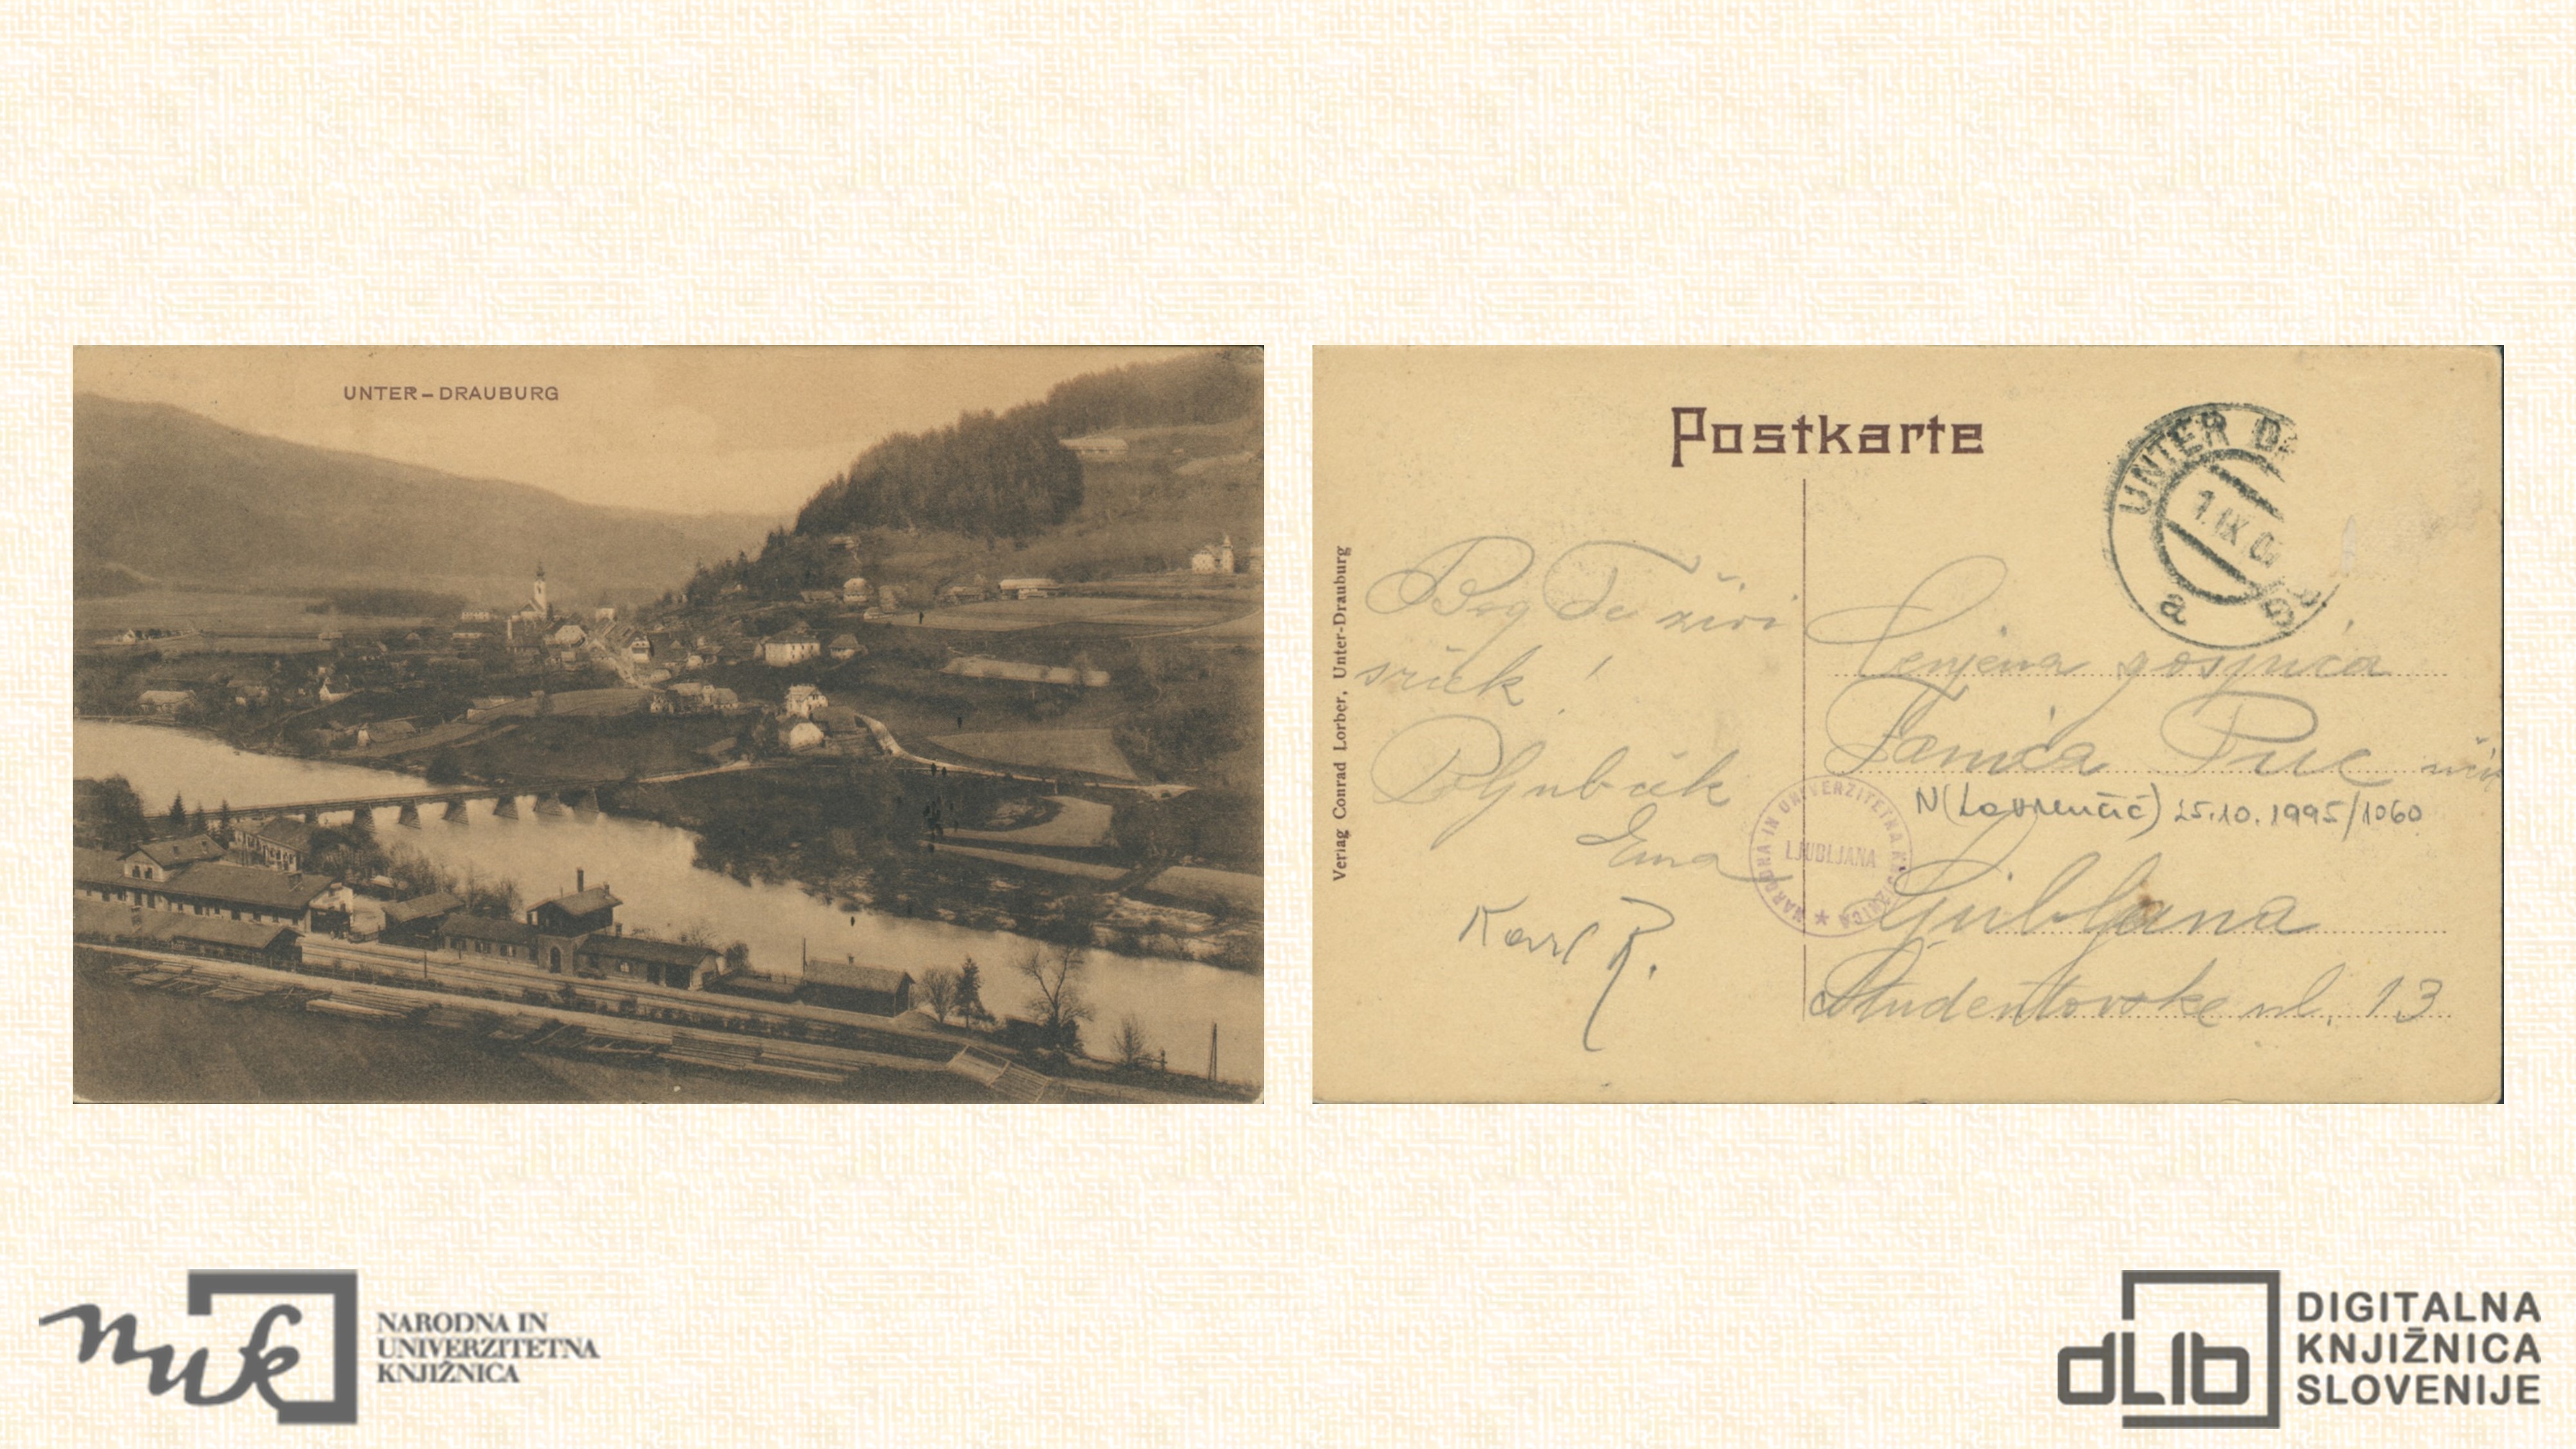 UNTER-DRAUBURG
Postkarte
UNTER D
1.IX 0
a
Verlag Conrad Lorber, Unter-Drauburg
Bog Te živi
srček!
Poljubček
Ema
Karl R.
Cenjena gospica
Fanica Puc
N(Lavrenčič) 25.10.1995/1060
Ljubljana
Študentovske ul. 13
NARODNA IN UNIVERZITETNA KNJIŽNICA
LJUBLJANA
nuk
NARODNA IN
UNIVERZITETNA
KNJIŽNICA
dLib
DIGITALNA
KNJIŽNICA
SLOVENIJE